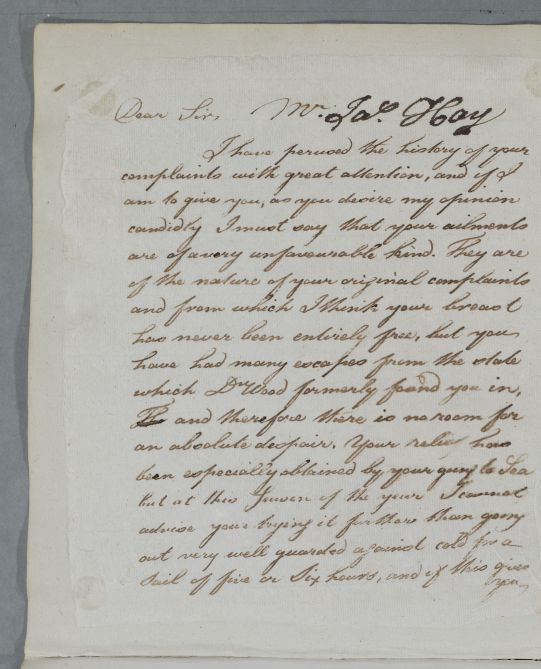 Dear Sir, Mr. Jas. Hay
I have perused the history of your
complaints with great attention, and if I
am to give you, as you desire my opinion
candidly I must say that your ailments
are of a very unfavourable kind. They are
of the nature of your original complaints
and from which I think your breast
has never been entirely free, but you
have had many escapes from the state
which Dr. Wood formerly found you in,
and therefore there is no room for
an absolute despair. Your relief has
been especially obtained by your going to Sea
but at this of the year I cannot
advise your trying it further than going
out very well guarded against cold for a
sail of five or Six hours, and if this gives
you